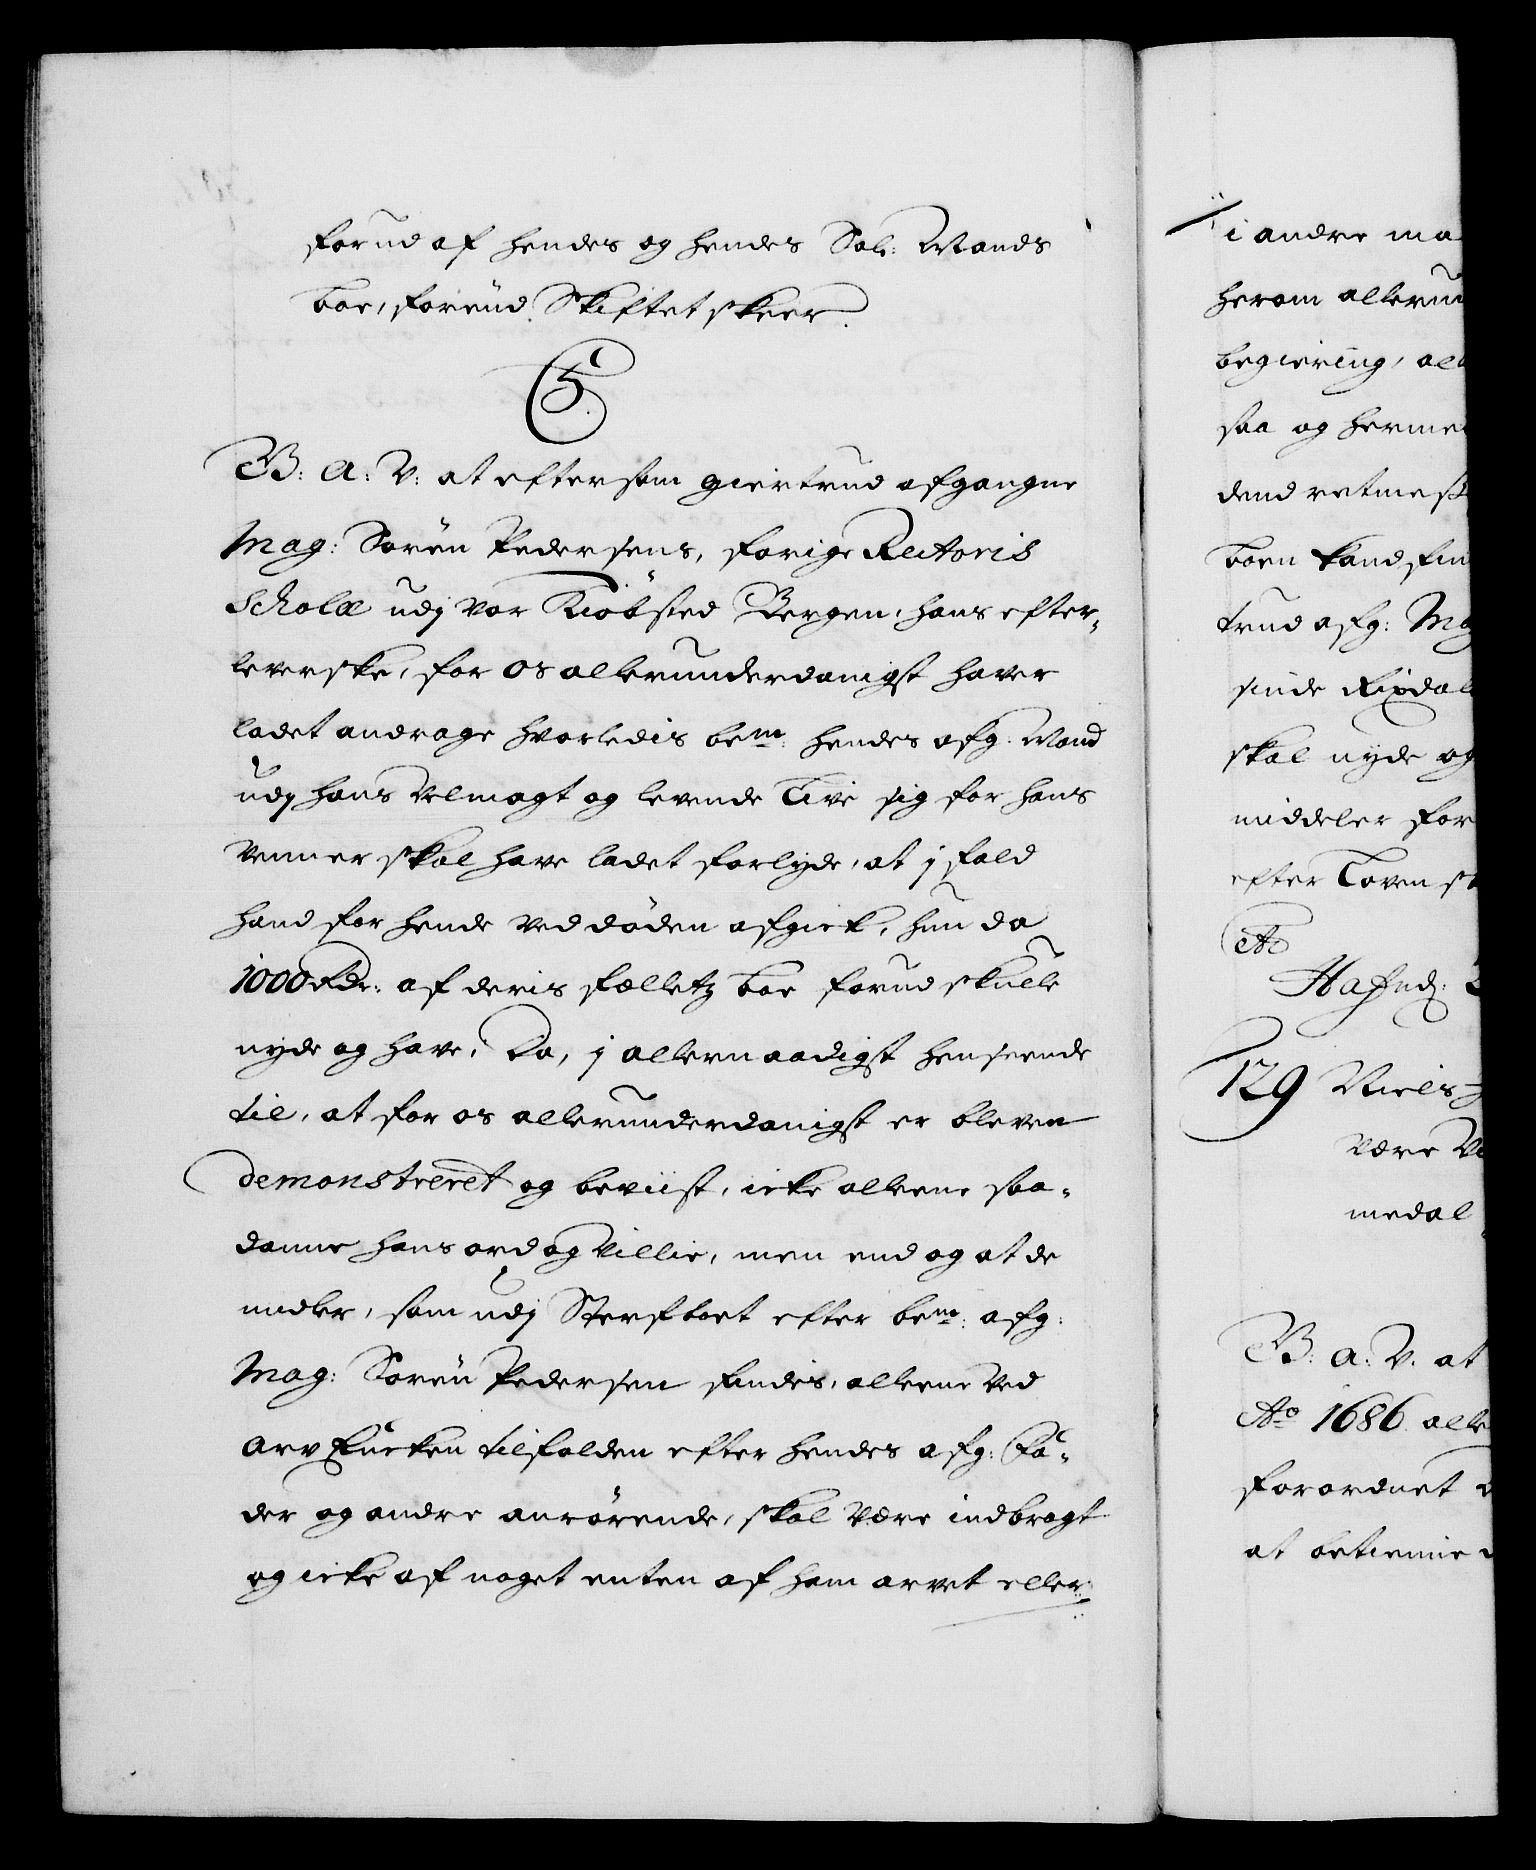 forud af hendes og hendes Sal: Mands
boe, forend Skiftet skeer.
C5.
B: A: V: at eftersom giertrud afgangne
Mag: Sorën Pedersens, forige Rectoris
Scholæ udj vor Kiöbsted Bergen, hans efter-
leverske, for os allerunderdanigst haver
ladet andrage hvorledis bem: hendes afg: Mand
udj hans velmagt og levende Live sig for hans
venner skal have ladet forlyde, at j fald
hand for hende ved döden afgick, hun da
1000 Rdr: af deris fælletz boe forud skulle
nyde og have, Da, j allernaadigst henseende
til, at for os allerunderdanigst er bleven
demonstreret og beviist, icke alleene saa-
danne hans ord og Villie, men end og at de
midler, som udj Sterfboet efter bem: afg:
Mag: Sorën Pedersen findis, alleene ved
arv hucken tilfalden efter hendes afg: Fa-
der og andre anrörende, skal være indbragt
og icke af noget enten af ham arvet eller
i andre ma
herom allerun
begiering, all
saa og herme
dend retmess
boen kand fin
trud afg: Ma
sinde Rixdal
skal nyde og
middeler for
efter Loven s
Hafnd:
129 Niels
være V
medal
B: A: V. at
Ao 1686. alle
forordnet
at betienne